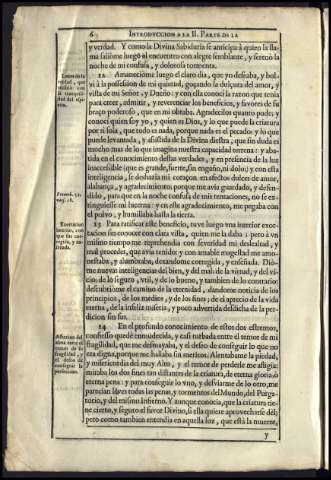 6 INTRODUCCION A LA II. PARTE DE LA
y verdad. Y como la Divina Sabiduria se anticipa à quien la llama saliòme luego al encuentro con alegre semblante, y serenò la
noche de mi confusa, y dolorosa tormenta.
12 Amaneciòme luego el claro dia, que yo deseaba, y bolvì à la possession de mi quietud, goçando de la
vista de mi Señor, y Dueño: y con ella conocì la razon que tenia
para creer, admitir, y reverenciar los beneficios, y favores de su
braço poderoso, que en mi obraba. Agradecilos quanto pude: y
conocì quien soy yo, y quien es Dios, y lo que puede la criatura
por si sola, que todo es nada, porque nada es el pecado: y lo que
puede levantada, y assistida de la Divina diestra, que sin duda es
mucho mas de lo que imagina nuestra capacidad terrena: y abatida en el conocimiento destas verdades, y en presencia de la luz
inaccessible (que es grande, fuerte, sin engaño, ni dolo) y con esta
inteligencia, se deshazia mi coraçon en afectos dulces de amor,
alabança, y agradecimiento: porque me avia guardado, y defendido, para que en la noche confusa de mis tentaciones, no se extinguiesse mi lucerna: y en este agradecimiento, me pegaba con
el polvo, y humillaba hasta la tierra.
13 Para ratificar este beneficio, tuve luego una interior exortacion
mismo tiempo me reprehendia con severidad mi deslealtad, y
mal proceder, que avia tenido; y con amable magestad me amonestaba, y alumbraba, dexandome corregida, y enseñada. Diòme nuevas inteligencias del bien, y del mal: de la virtud, y del vicio: de lo seguro, util, y de lo bueno, y tambien de lo contrario:
descubriòme el camino de la eternidad, dandome noticia de los
principios, de los medios, y de los fines; de el aprecio de la vida
eterna, de la infeliz miseria, y poco advertida desdicha de la perdicion sin fin.
14 En el profundo conocimiento de estos dos estremos,
confiesso quedè enmudecida, y casi turbada entre el temor de mi
fragilidad, que me desmayaba, y el deseo de conseguir lo que no
era digna, porque me hallaba sin meritos. Alentabame la piedad,
y misericordia del muy Alto, y el temor de perderle me afligia:
miraba los dos fines tan distantes de la criatura, de eterna gloria, ò
eterna pena: y para conseguir lo uno, y desviarme de lo otro, me
parecian leves todas las penas, y tormentos del Mundo, del Purgatorio, y del mismo Infierno. Y aunque conocia, que la criatura tiene cierto, y seguro el favor Divino, si ella quiere aprovecharse del;
pero como tambien entendia en aquella luz, que està la muerte,
y